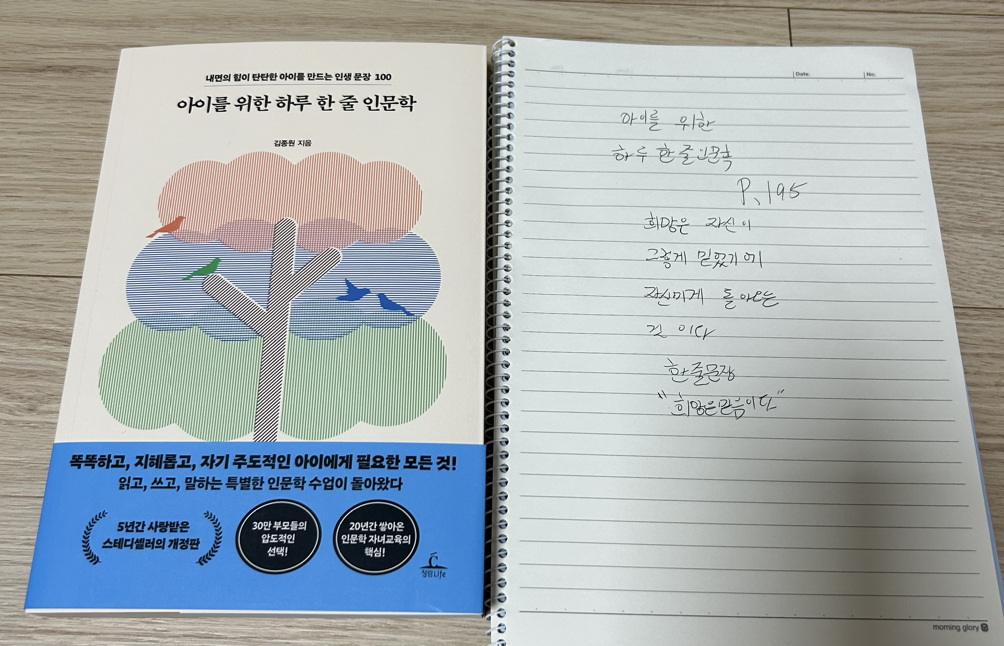 내면의 힘이 탄탄한 아이를 만드는 인생 문장 100
아이를 위한 하루 한 줄 인문학
김종원 지음
똑똑하고, 지혜롭고, 자기 주도적인 아이에게 필요한 모든 것!
읽고, 쓰고, 말하는 특별한 인문학 수업이 돌아왔다
5년간 사랑받은
스테디셀러의 개정판
30만 부모들의
압도적인
선택!
20년간 쌓아온
인문학 자녀교육의
핵심!
청림Life
Date.
No.
아이를 위한
하루 한 줄 인문학
P.195
희망은 자신이
그렇게 믿었기에
자신에게 돌아오는
것 이다
한 줄 문장
"희망은 믿음이다"
morning glory